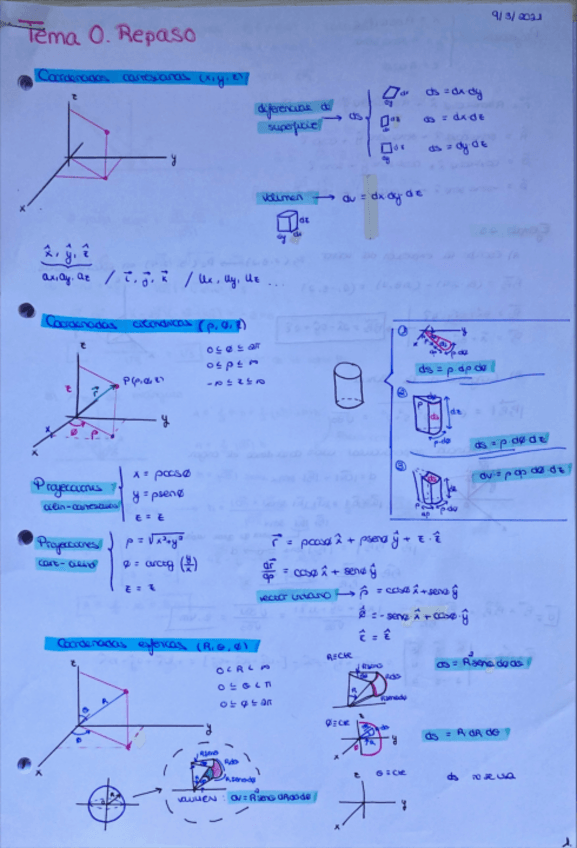 9/3/2021
Tema 0. Repaso
Coordenadas cartesianas (x, y, z)
z
y
x
diferencial de superficie → ds
ds = dx dy
ds = dx dz
ds = dy dz
volumen → dv = dx dy dz
x̂, ŷ, ẑ
ax, ay, az / / ux, uy, uz ...
Coordenadas cilíndricas (ρ, φ, z)
0 ≤ φ ≤ 2π
0 ≤ ρ ≤ ∞
-∞ ≤ z ≤ ∞
P(ρ, φ, z)
z
y
x
① ds = ρ dρ dφ
② ds = ρ dφ dz
③ dv = ρ dρ dφ dz
Proyecciones
cilín-cartesianas
x = ρcosφ
y = ρsenφ
z = z
Proyecciones
cart-cilínd
ρ = √x²+y²
φ = arctg (y/x)
z = z
r⃗ = ρcosφ x̂ + ρsenφ ŷ + z · ẑ
dr⃗/dρ = cosφ x̂ + senφ ŷ
vector unitario → ρ̂ = cosφ x̂ + senφ ŷ
φ̂ = -senφ x̂ + cosφ · ŷ
ẑ = ẑ
Coordenadas esféricas (R, θ, φ)
0 < R < ∞
0 ≤ θ < π
0 ≤ φ ≤ 2π
z
y
x
R = cte
ds = R²senθ dθ dφ
φ = cte
ds = R dR dθ
θ = cte
ds no se usa
volumen: dv = R²senθ dR dθ dφ
1